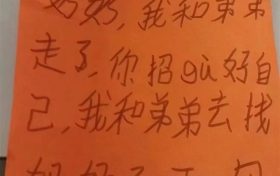 我和弟弟
走了,你招gù好自
己,我和弟弟去找